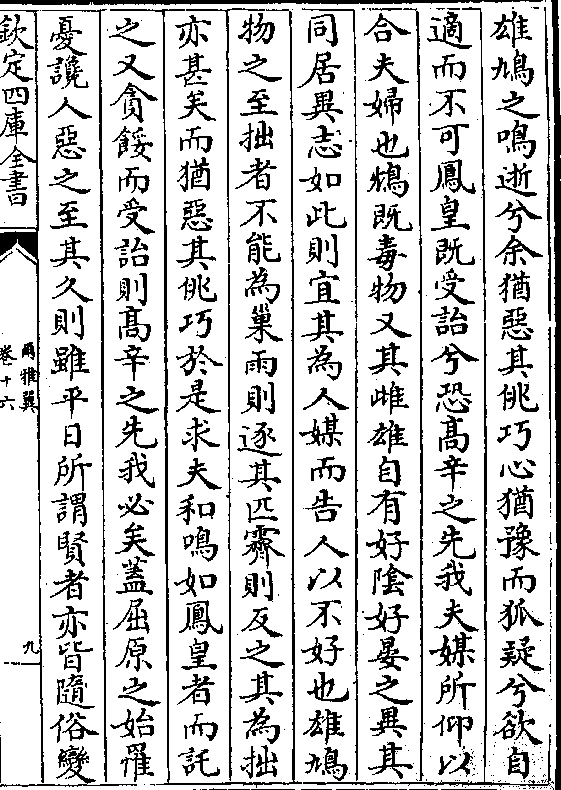 雄鳩之鳴逝兮余猶惡其佻巧心猶豫而狐疑兮欲自
適而不可鳳皇既受詒兮恐髙辛之先我夫媒所仰以
合夫婦也鴆既毒物又其雌雄自有好陰好晏之異其
同居異志如此則宜其為人媒而告人以不好也雄鳩
物之至拙者不能為巢雨則逐其匹霽則反之其為拙
亦甚矣而猶惡其佻巧於是求夫和鳴如鳳皇者而託
之又貪餒而受詒則髙辛之先我必矣蓋屈原之始罹
憂讒人惡之至其久則雖平日所謂賢者亦皆隨俗變
欽定四庫全書
爾雅翼
卷十六
九